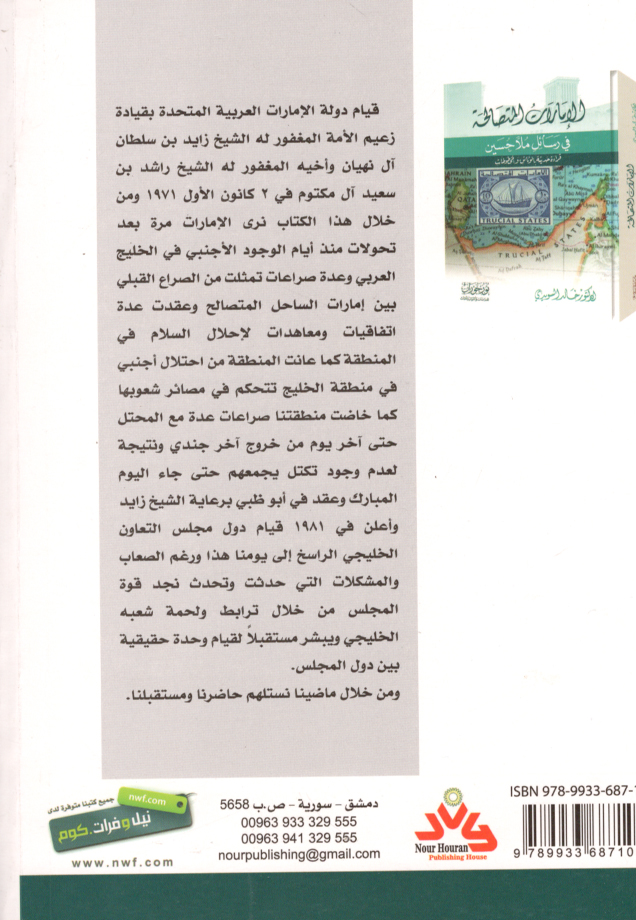 قيام دولة الإمارات العربية المتحدة بقيادة
زعيم الأمة المغفور له الشيخ زايد بن سلطان
آل نهيان وأخيه المغفور له الشيخ راشد بن
سعيد آل مكتوم في ٢ كانون الأول ١٩٧١ ومن
خلال هذا الكتاب نرى الإمارات مرة بعد
تحولات منذ أيام الوجود الأجنبي في الخليج
العربي وعدة صراعات تمثلت من الصراع القبلي
بين إمارات الساحل المتصالح وعقدت عدة
اتفاقيات ومعاهدات لإحلال السلام في
المنطقة كما عانت المنطقة من احتلال أجنبي
في منطقة الخليج تتحكم في مصائر شعوبها
كما خاضت منطقتنا صراعات عدة مع المحتل
حتى آخر يوم من خروج آخر جندي ونتيجة
لعدم وجود تكتل يجمعهم حتى جاء اليوم
المبارك وعقد في أبو ظبي برعاية الشيخ زايد
وأعلن في ١٩٨١ قيام دول مجلس التعاون
الخليجي الراسخ إلى يومنا هذا ورغم الصعاب
والمشكلات التي حدثت وتحدث نجد قوة
المجلس من خلال ترابط ولحمة شعبه
الخليجي ويبشر مستقبلاً لقيام وحدة حقيقية
بين دول المجلس.
ومن خلال ماضينا نستلهم حاضرنا ومستقبلنا.
الإمارات المتصالحة
في رسائل ملا حسين
TRUCIAL STATES
TRUCIAL STATES
الدكتور خالد السويدي
جميع كتبنا متوفرة لدى
nwf.com
نيل وفرات.كوم
www.nwf.com
دمشق - سورية - ص.ب 5658
00963 933 329 555
00963 941 329 555
nourpublishing@gmail.com
Nour Houran
Publishing House
ISBN 978-9933-687-1
9 789933 68710